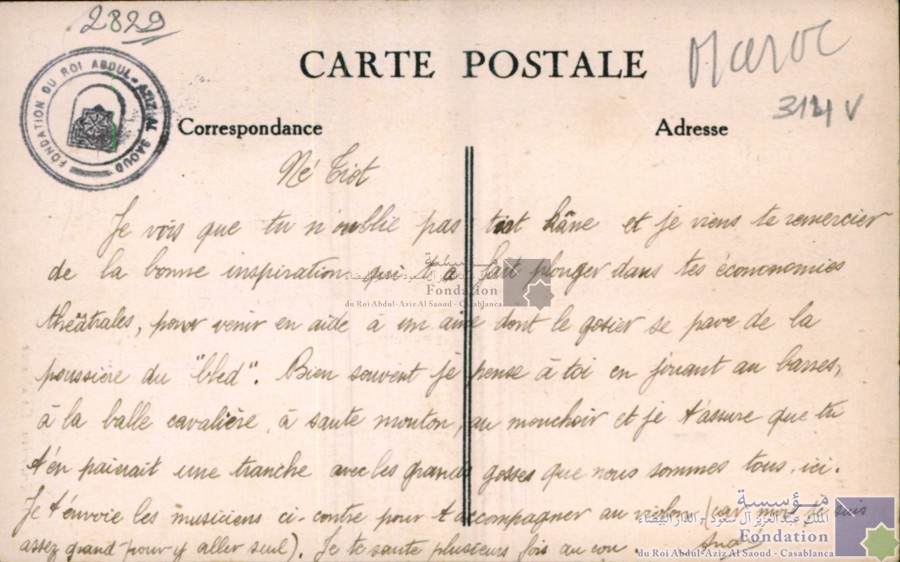 2829
CARTE POSTALE
Maroc
3141 V
FONDATION DU ROI ABDUL-AZIZ AL SAOUD
Correspondance
Adresse
Né Tiot
Je vois que tu n'oublie pas tiot hâne et je viens te remercier
de la bonne inspiration qui t'a fait plonger dans tes écononomies
théâtrales, pour venir en aide à un aîné dont le gosier se pave de la
poussière du "bled". Bien souvent je pense à toi en jouant au barres,
à la balle cavalière, à saute mouton, au mouchoir et je t'assure que tu
t'en paierait une tranche avec les grands gosses que nous sommes tous ici.
Je t'envoie les musiciens ci-contre pour t'accompagner au violon (car moi je suis
assez grand pour y aller seul). Je te saute plusieurs fois au cou.
Fondation
du Roi Abdul-Aziz Al Saoud - Casablanca
مؤسسة
الملك عبد العزيز آل سعود - الدار البيضاء
Fondation
du Roi Abdul-Aziz Al Saoud - Casablanca